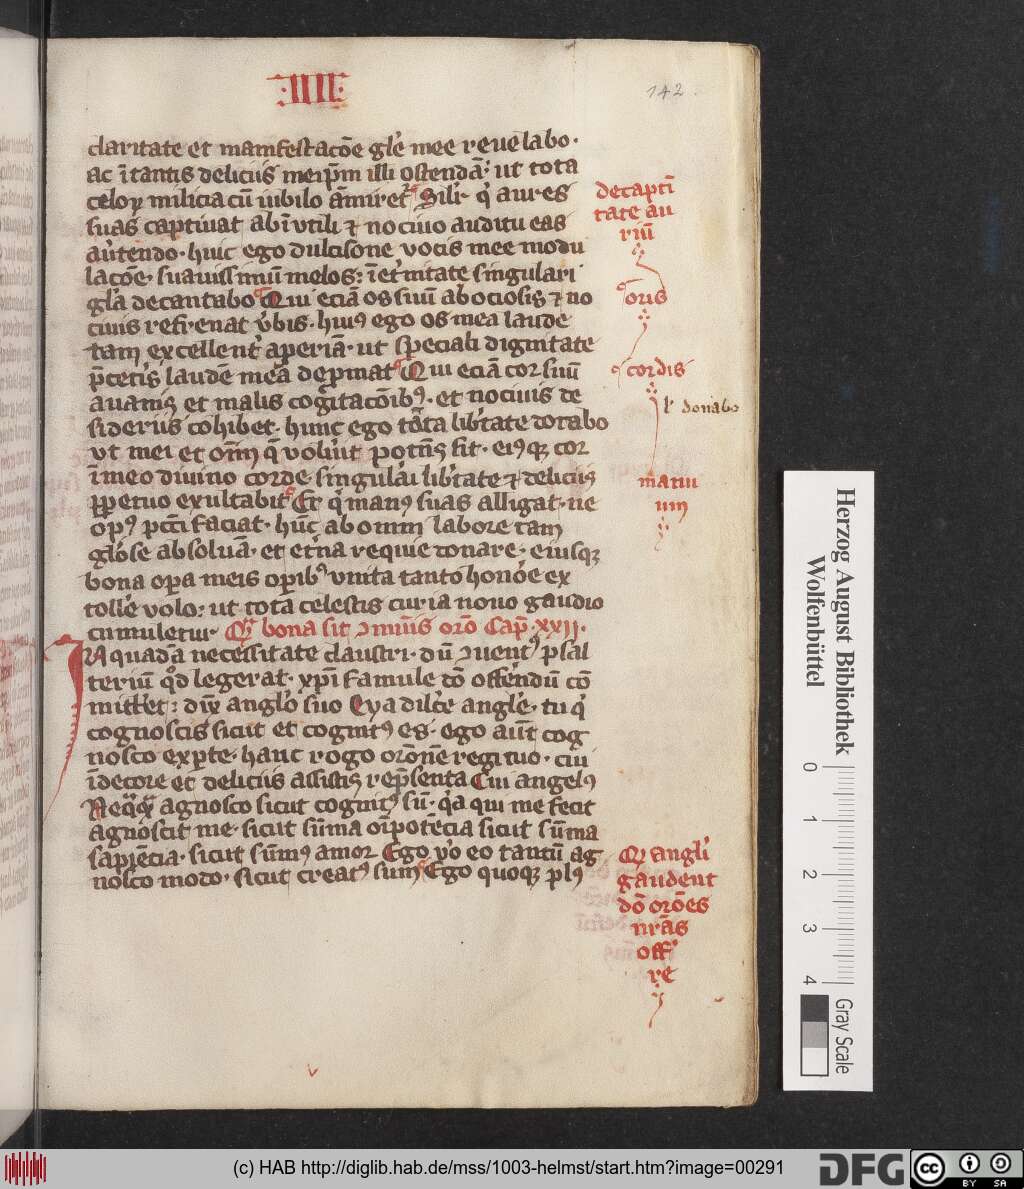 :IIII:
142.
claritate et manifestacōe glē mee reuelabo·
ac ītantis deliciis meip̄m illi ostendā· ut tota
celoꝝ milicia cū iubilo āmiret᷑ Silr̄· qͥ aures
suas captiuat ab īutili ⁊ nociuo auditu eas
au̾tendo· huic ego dulcisone vocis mee modu
lacōe· suauissimū melos: īet̾nitate singulari
gl̄a decantabo Qui eciā os suū ab ociosis ⁊ no
ciuis refrenat v̾bis· huiꝰ ego os mea laude
tam excellent̾ aperiā· ut speciali dignitate
p̄cet̾is laudē meā dep̱mat Qui eciā cor suū
a vanis et malis cogitacōibꝰ· et nociuis de
sideriis cohibet· hunc ego tāta lib̾tate dotabo
vt mei et oīm q̄ volu̾it potēs sit· eiꝰqꝫ cor
ī meo diuino corde· singulari lib̾tate ⁊ deliciis
p̱petuo exultabit Et qͥ manꝰ suas alligat· ne
opꝰ pcc̄i faciat· hūc ab omni labore tam
glōse absoluā· et et̾na requie donare· eiusqꝫ
bona op̱a meis op̱ibꝰ vnita tanto honōe ex
toll̾e volo: ut tota celestis curia nouo gaudio
cumuletur· Qͣ bona sit ꝯmūis orō Cap̄ XXII·
IN quadā necessitate claustri· dū ꝯuentꝰ psal
teriū qͦd legerat· xp̄i famule dō offerēdū cō
mitt̾et: dix̄ anglo suo Eya dilc̄e angle· tu qͥ
cognoscis sicut et cognitꝰ es· ego aūt cog
nosco exp̱te· hanc rogo orōnē regi tuo· cui
īdecore et deliciis assistis rep̄senta Cui angelꝰ
Neqͣqͣ agnosco sicut cognitꝰ sū· qͥa qui me fecit
agnoscit me· sicut sūma oīpotēcia sicut sūma
sapiēcia· sicut sūmꝰ amor Ego v̊o eo tantū ag
nosco modo· sicut creatꝰ sum Ego quoqꝫ plꝰ
de capti
tate au
riū
oris
cordis
l̾ donabo
manu
um
Qͣ angli
gaudent
dō orōes
nr̄as
off̾
re
Herzog August Bibliothek
Wolfenbüttel
0 1 2 3 4
Gray Scale
(c) HAB http://diglib.hab.de/mss/1003-helmst/start.htm?image=00291
DFG
cc BY SA